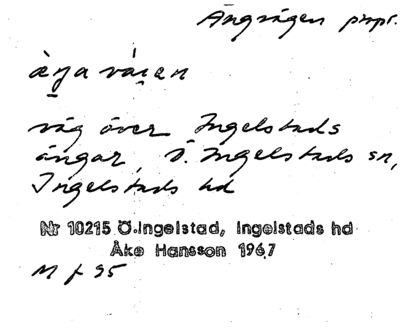 Ängvägen pnpr.
æŋa våɹen
väg över Ingelstads
ängar, Ö. Ingelstads sn,
Ingelstads hd
Nr 10215 Ö.Ingelstad, Ingelstads hd
Åke Hansson 1967
M f 95